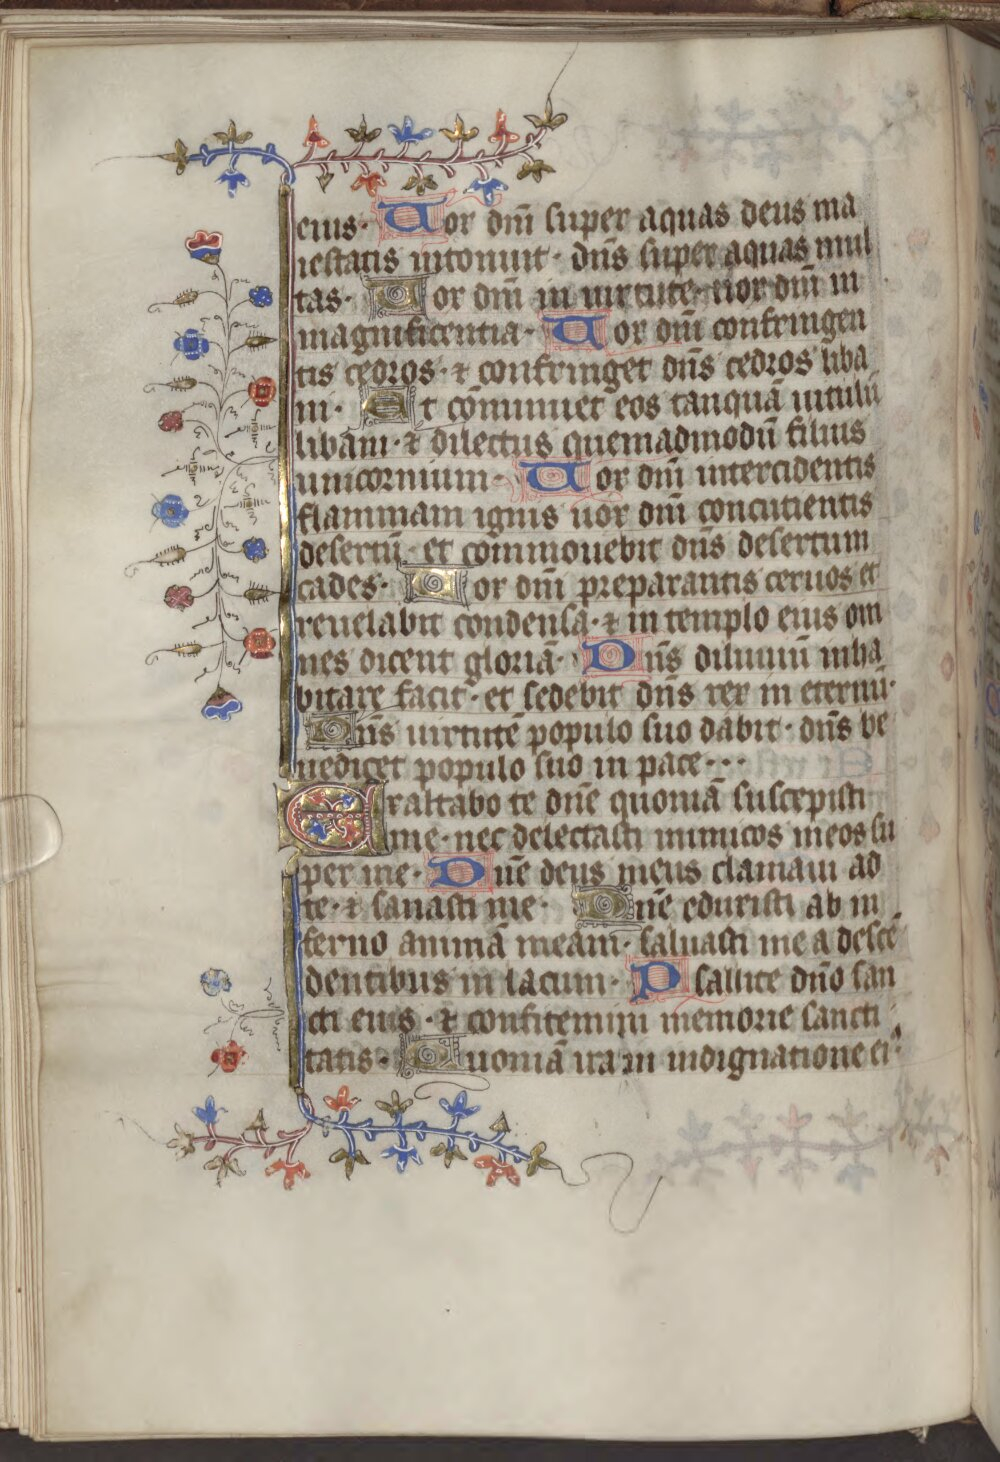 eius· Uox dm̄ super aquas deus ma
iestatis intonuit· dn̄s super aquas mul
tas· Uox dm̄ in uirtute· uox dm̄ in
magnificentia· Uox dm̄ confringen
tis cedros· ⁊ confringet dn̄s cedros liba
ni· Et cōminuet eos tanquā uitulū
libani· ⁊ dilectus quemadmodū filius
unicornium· Uox dm̄ intercidentis
flammam ignis uox dm̄ concutientis
desertū· et commouebit dn̄s desertum
cades· Uox dm̄ preparantis ceruos et
reuelabit condensa· ⁊ in templo eius om
nes dicent gloriā· Dn̄s diluuiū inha
bitare facit· et sedebit dn̄s rex in eternū·
Dn̄s uirtutē populo suo dabit· dn̄s be
nedicet populo suo in pace···
Exaltabo te dn̄e quoniā suscepisti
me· nec delectasti inimicos meos su
per me· Dn̄e deus meus clamaui ad
te· ⁊ sanasti me· Dn̄e eduxisti ab in
ferno animā meam· saluasti me a descē
dentibus in lacum· Psallite dn̄o san
cti eius· ⁊ confitemini memorie sancti
tatis· Quoniā ira in indignatione ei⁹·